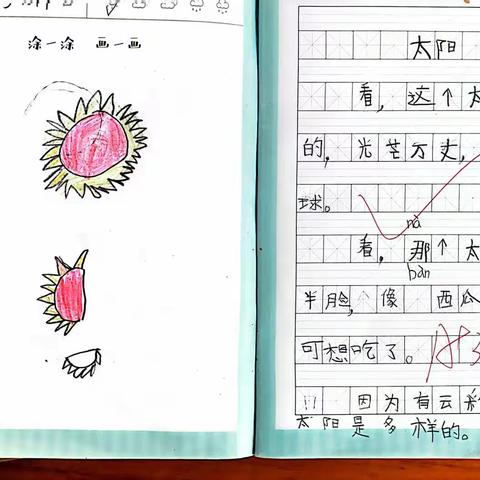 涂一涂 画一画
太阳
看,这个太
的,光芒万丈,
球。
nà
看,那个太
bàn
半脸,像西瓜
可想吃了。
因为有云彩
太阳是多样的。